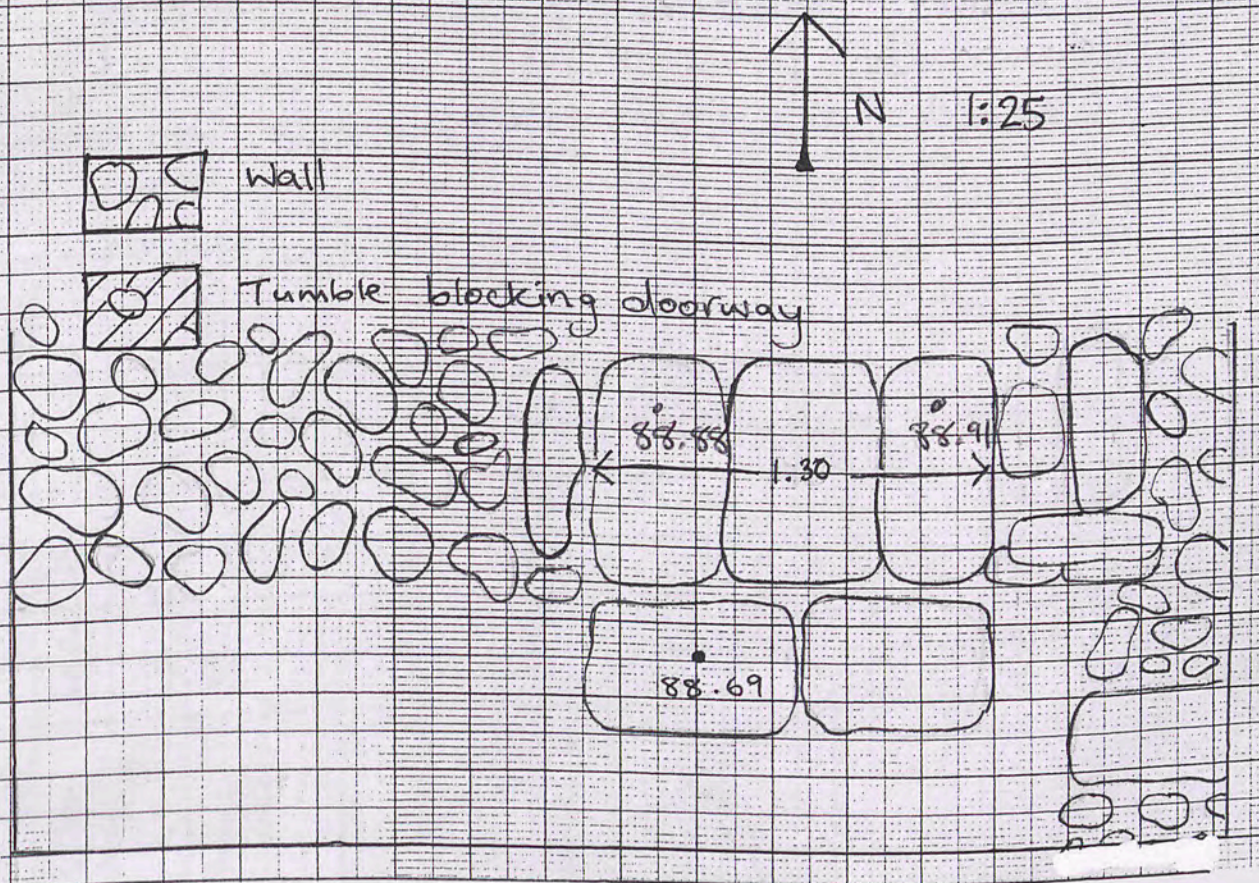 N 1:25
Wall
Tumble blocking doorway
88.88 88.91
1.30
88.69